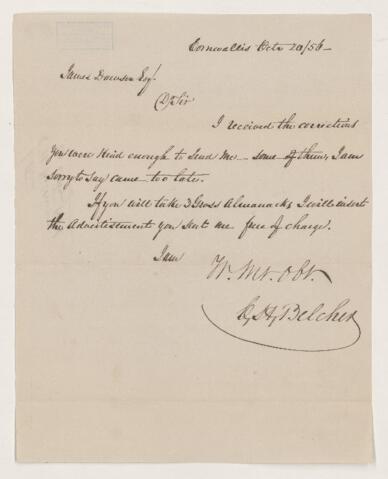 Cornwallis Octr 20/56 -
James Dawson Esqr.
Dr Sir
I received the corrections
you were kind enough to send me - some of them, I am
sorry to say came too late.
If you will take 3 Gross Almanacks I will insert
the Advertisement you sent me free of charge.
I am
Yr. Mt. Obt.
C, H, Belcher